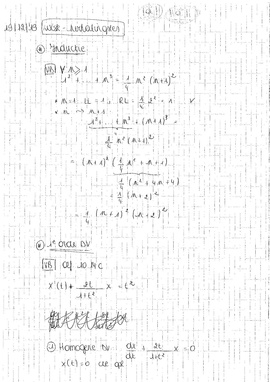 Inductie
VB ∀ n ≥ 1
1³ + ... + n³ = 1/4 n² (n+1)²
• n=1 LL = 1, RL = 1/4 2² = 1 ✓
• n → n+1
1³ + ... + n³ + (n+1)³
1/4 n² (n+1)²
= (n+1)² (1/4 n² + n + 1)
1/4 (n² + 4n + 4)
= 1/4 (n+2)²
= 1/4 (n+1)² (n+2)²
1e orde DV
VB
x'(t) + 2t/(1+t²) x = t²
① Homogene DV dx/dt + 2t/(1+t²) x = 0
x(t) = 0